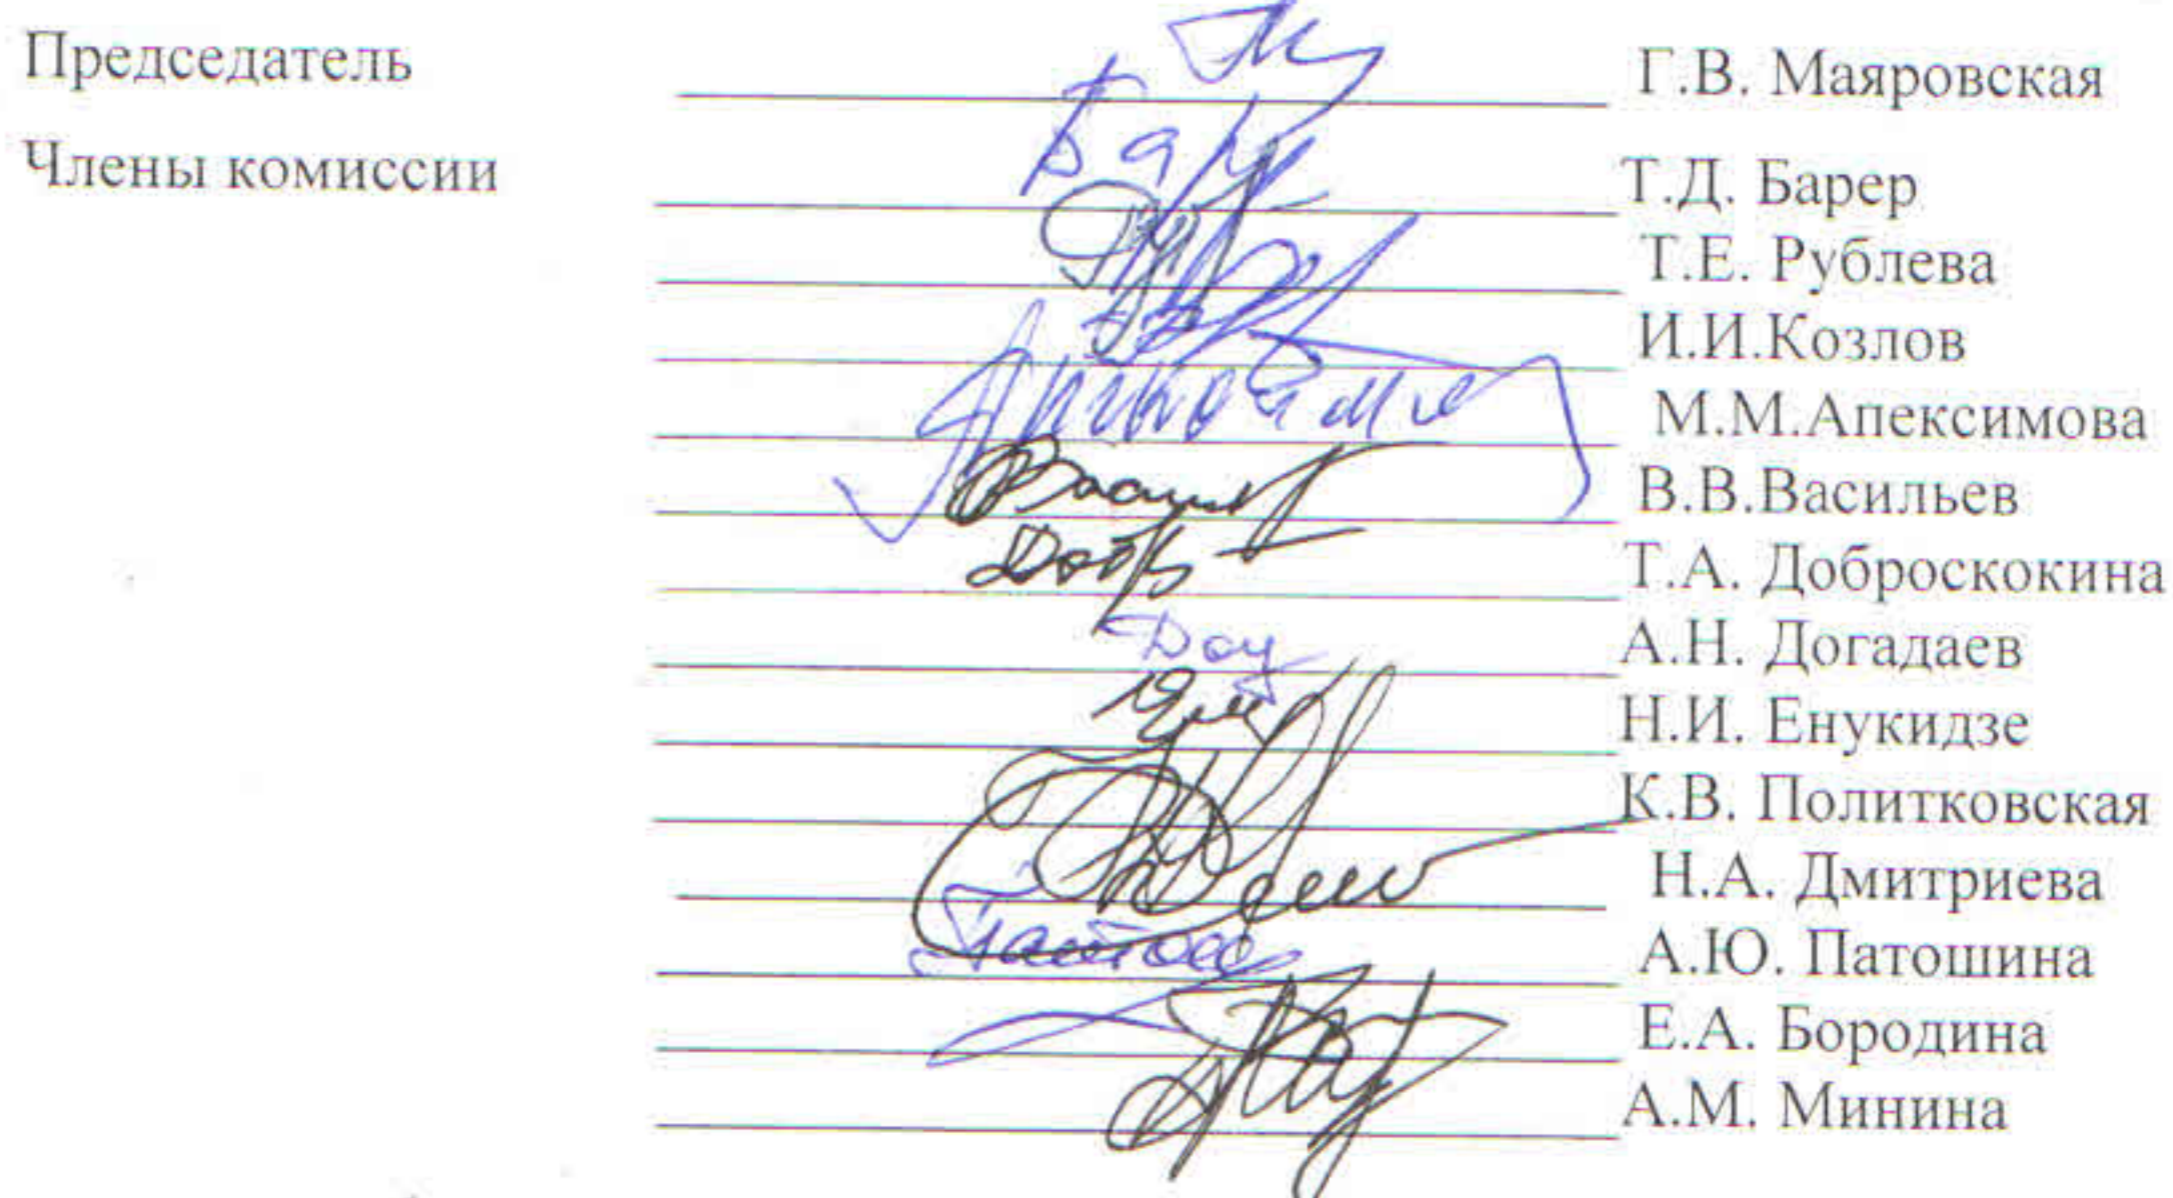 Председатель Г.В. Маяровская
Члены комиссии Т.Д. Барер
Т.Е. Рублева
И.И.Козлов
М.М.Апексимова
В.В.Васильев
Т.А. Доброскокина
А.Н. Догадаев
Н.И. Енукидзе
К.В. Политковская
Н.А. Дмитриева
А.Ю. Патошина
Е.А. Бородина
А.М. Минина